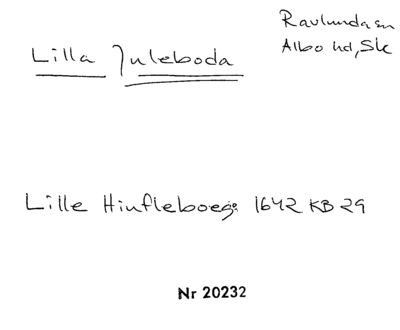 Ravlunda sn
Albo hd, Sk
Lilla Juleboda
Lille Hiufleboege 1642 KB 29
Nr 20232